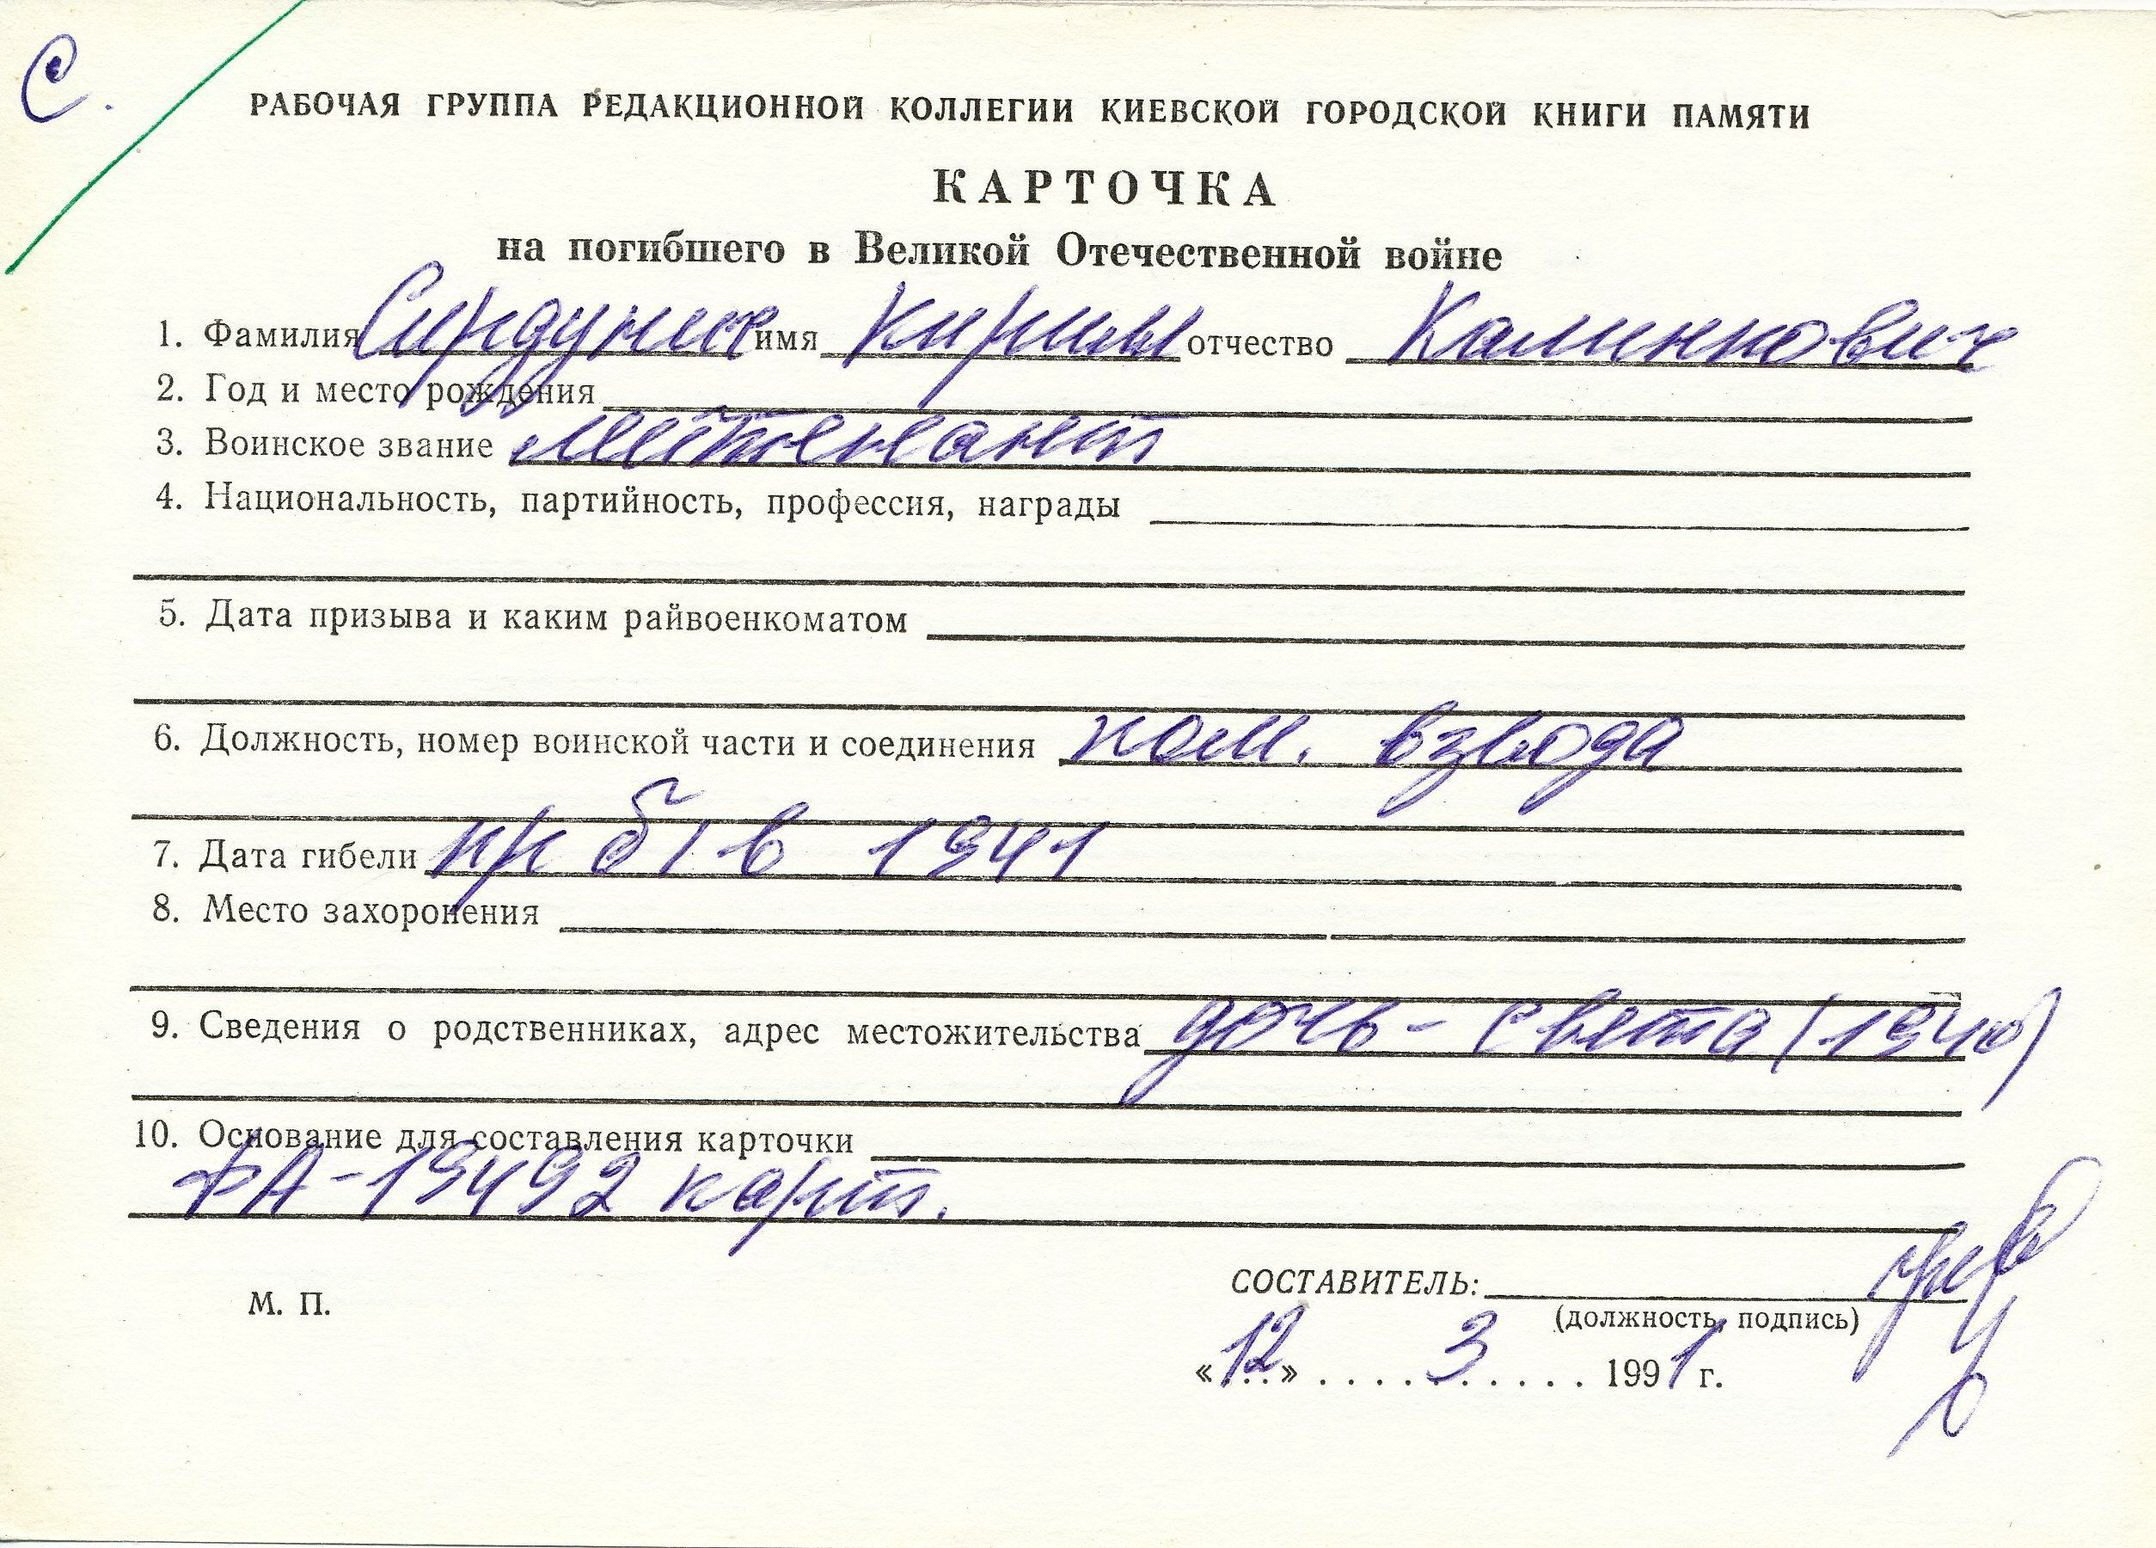 С.
РАБОЧАЯ ГРУППА РЕДАКЦИОННОЙ КОЛЛЕГИИ КИЕВСКОЙ ГОРОДСКОЙ КНИГИ ПАМЯТИ
КАРТОЧКА
на погибшего в Великой Отечественной войне
1. Фамилия имя Кирилл отчество Калинкович
2. Год и место рождения
3. Воинское звание лейтенант
4. Национальность, партийность, профессия, награды
5. Дата призыва и каким райвоенкоматом
6. Должность, номер воинской части и соединения ком. взвода
7. Дата гибели пр б/в 1941
8. Место захоронения
9. Сведения о родственниках, адрес местожительства дочь - Света (1940)
10. Основание для составления карточки
ФА-19492 карт.
М. П.
СОСТАВИТЕЛЬ:
(должность, подпись)
«12» 3 1991 г.